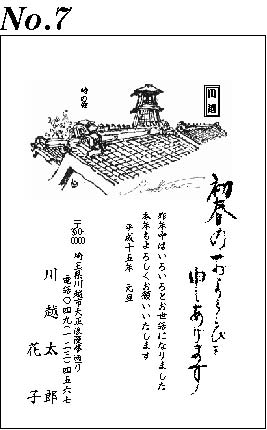 No.7
川越
時の鐘
初春のおよろこびを
申しあげます
昨年中はいろいろとお世話になりました
本年もよろしくお願いいたします
平成十五年 元旦
〒350-0000
埼玉県川越市大正浪漫夢通り
電話〇四九(一二三)四五六七
川越太郎
花子